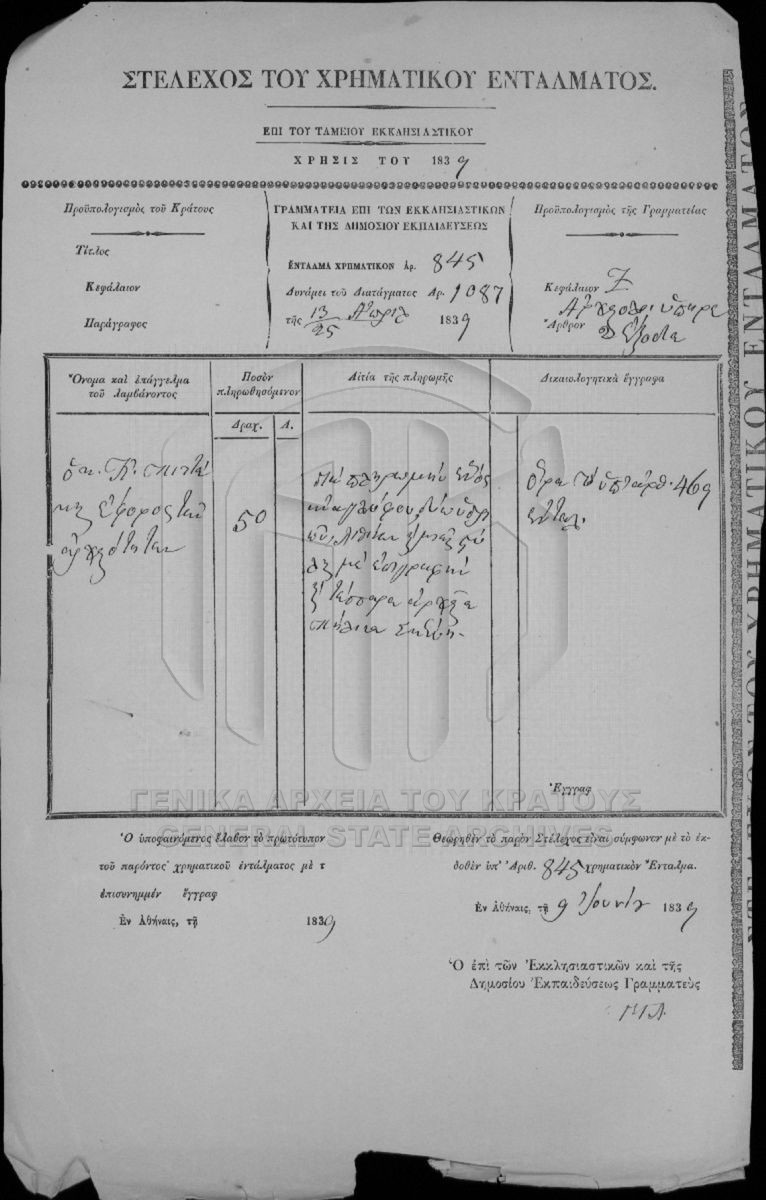 ΣΤΕΛΕΧΟΣ ΤΟΥ ΧΡΗΜΑΤΙΚΟΥ ΕΝΤΑΛΜΑΤΟΣ.
ΕΠΙ ΤΟΥ ΤΑΜΕΙΟΥ ΕΚΚΛΗΣΙΑΣΤΙΚΟΥ
ΧΡΗΣΙΣ ΤΟΥ 1839
Προϋπολογισμὸς τοῦ Κράτους
Τίτλος
Κεφάλαιον
Παράγραφος
ΓΡΑΜΜΑΤΕΙΑ ΕΠΙ ΤΩΝ ΕΚΚΛΗΣΙΑΣΤΙΚΩΝ
ΚΑΙ ΤΗΣ ΔΗΜΟΣΙΟΥ ΕΚΠΑΙΔΕΥΣΕΩΣ
ΕΝΤΑΛΜΑ ΧΡΗΜΑΤΙΚΟΝ Αρ. 845
Δυνάμει τοῦ Διατάγματος Αρ. 1087
τῆς 13/25 Απριλ 1839
Προϋπολογισμὸς τῆς Γραμματείας
Κεφάλαιον Ζ
Ἄρθρον 2 ἔξοδα
Ὄνομα καὶ ἐπάγγελμα
τοῦ λαμβάνοντος
Ποσὸν
πληρωθησόμενον
Δραχ. Λ.
Αἰτία τῆς πληρωμῆς
Δικαιολογητικὰ ἔγγραφα
ὁ κ. Κ. Πιττά
κης ἔφορος τῶν
ἀρχαιοτήτων
50
Διὰ πληρωμὴν ἑνὸς
ἀναγλύφου
με ἐπιγραφὴν
τέσσαρα ἀρχαῖα
ὅρα τὸ ὑπ' ἀριθ. 469
ἔνταλ.
Ἔγγραφ
ΓΕΝΙΚΑ ΑΡΧΕΙΑ ΤΟΥ ΚΡΑΤΟΥΣ
GENERAL STATE ARCHIVES
Ὁ ὑποφαινόμενος ἔλαβον τὸ πρωτότυπον
τοῦ παρόντος χρηματικοῦ ἐντάλματος μὲ τ
ἐπισυνημμέν ἔγγραφ
Ἐν Ἀθήναις, τῇ 1839
Θεωρηθὲν τὸ παρὸν Στέλεχος εἶναι σύμφωνον μὲ τὸ ἐκ-
δοθὲν ὑπ' Ἀριθ. 845 χρηματικὸν Ἔνταλμα.
Ἐν Ἀθήναις, τῇ 9 Ἰουνίου 1839
Ὁ ἐπὶ τῶν Ἐκκλησιαστικῶν καὶ τῆς
Δημοσίου Ἐκπαιδεύσεως Γραμματεὺς
ΣΤΕΛΕΧΟΣ ΤΟΥ ΧΡΗΜΑΤΙΚΟΥ ΕΝΤΑΛΜΑΤΟΣ